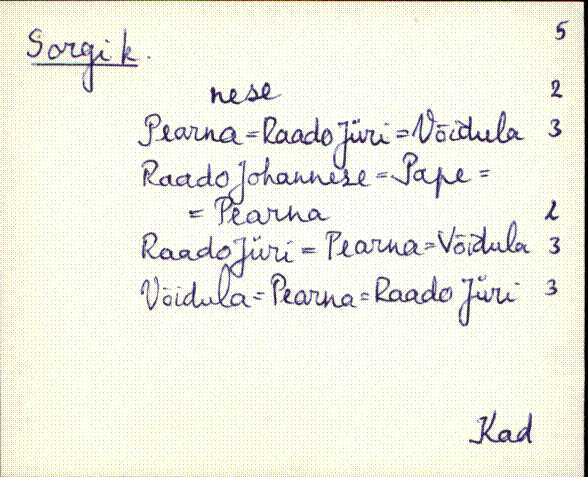 5
Sorgi k.
nese 2
Pearna=Raado Jüri=Võidula 3
Raado Johannese=Pape=
=Pearna 2
Raado Jüri=Pearna=Võidula 3
Võidula=Pearna=Raado Jüri 3
Kad